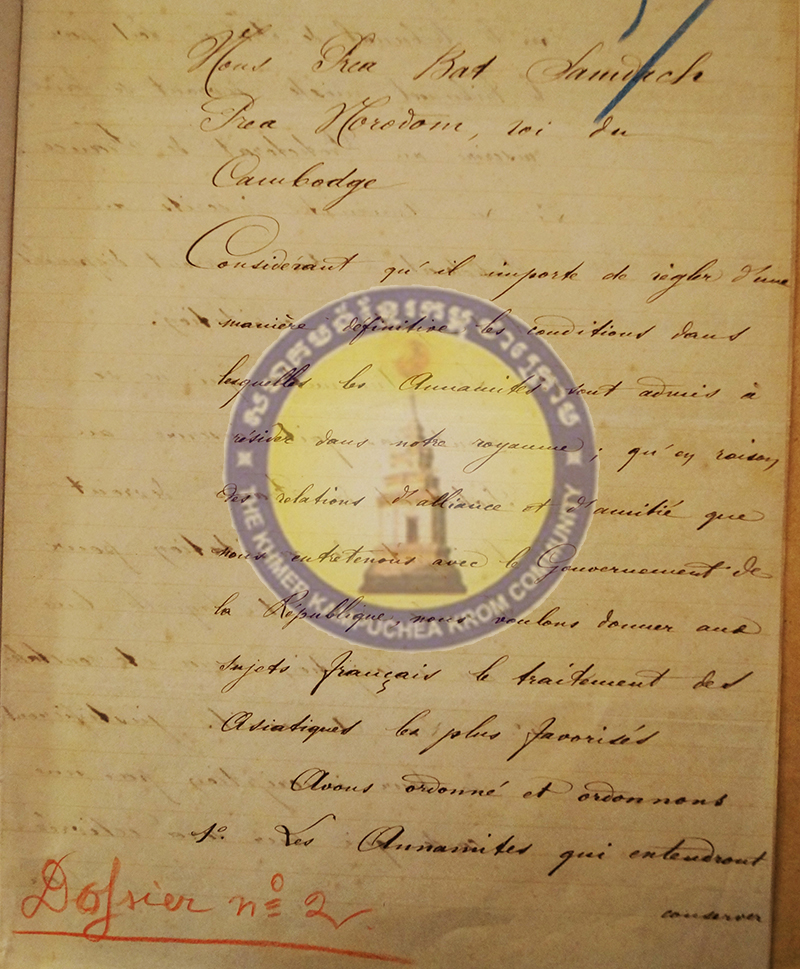 Nous Prea Bat Samdach
Prea Norodom, roi du
Cambodge
Considérant qu'il importe de régler d'une
manière définitive les conditions dans
lesquelles les Annamites sont admis à
résider dans notre royaume ; qu'en raison
des relations d'alliance et d'amitié que
nous entretenons avec le Gouvernement de
la République, nous voulons donner aux
sujets français le traitement des
Asiatiques les plus favorisés
Avons ordonné et ordonnons
1º Les Annamites qui entendront
conserver
Dossier nº 2
THE KHMER KAMPUCHEA KROM COMMUNITY